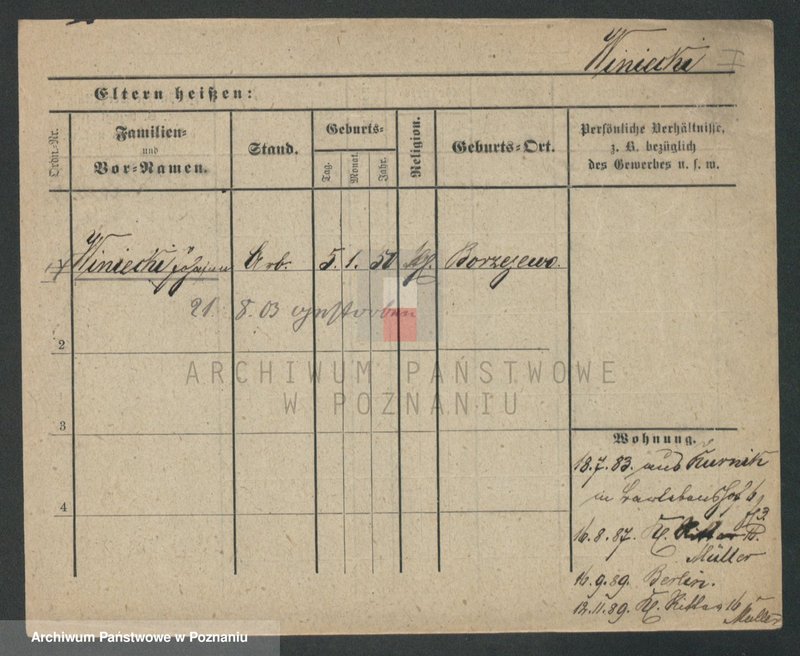 Winiecki I
Eltern heißen:
Ordn.-Nr.
Familien-
und
Vor-Namen.
Stand.
Geburts-
Tag.
Monat.
Jahr.
Religion.
Geburts-Ort.
Persönliche Verhältnisse,
z. B. bezüglich
des Gewerbes u. s. w.
1 Winiecki Johann Arb. 5. 1. 50 Borzejewo.
21. 8. 03 gestorben
2
3
4
ARCHIWUM PAŃSTWOWE
W POZNANIU
Wohnung.
18.7.83. aus Kurnik
in
16.8.87.
Müller
16.9.89. Berlin.
12.11.89. 16
Müller
Archiwum Państwowe w Poznaniu